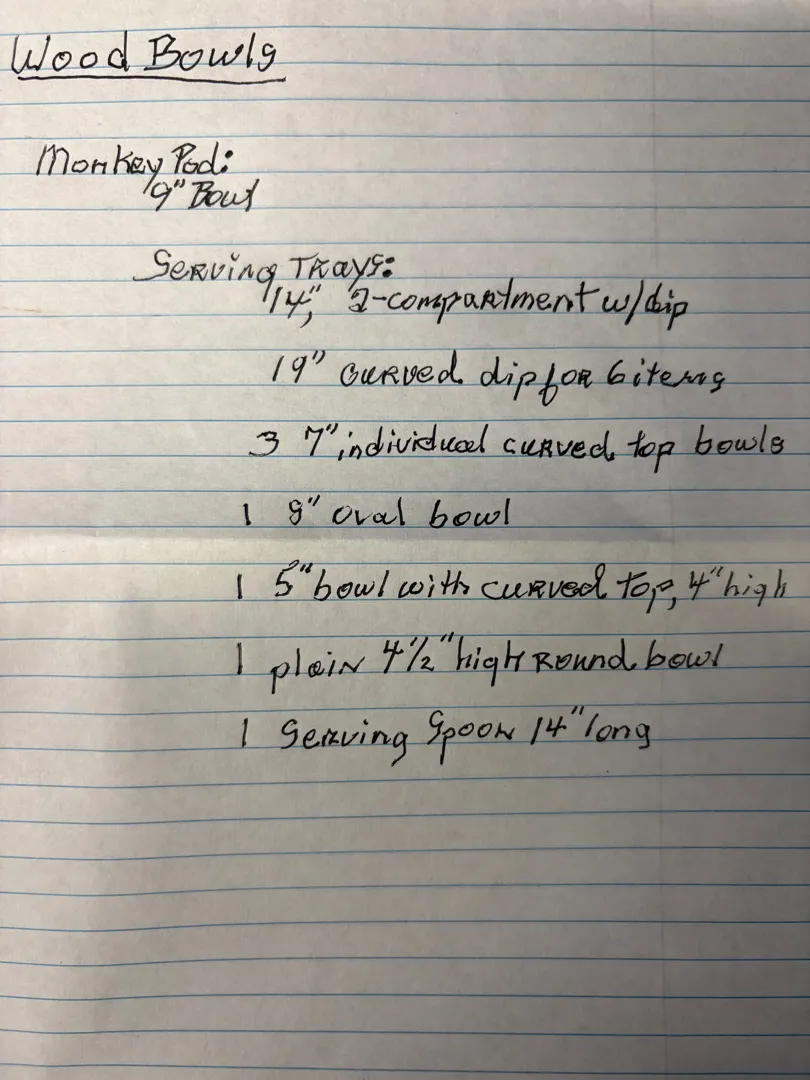 Wood Bowls
Monkey Pod:
9" Bowl
Serving Trays:
14", 2-compartment w/dip
19" curved dip for 6 items
3 7", individual curved top bowls
1 8" oval bowl
1 5" bowl with curved top, 4" high
1 plain 4 1/2" high Round bowl
1 Serving Spoon 14" long